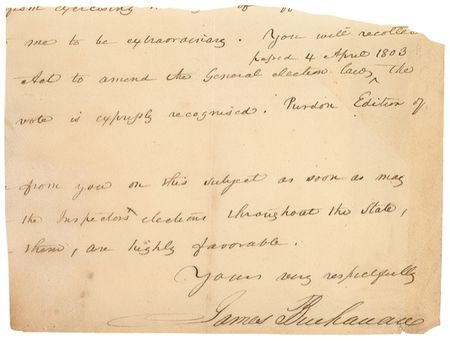 from exercising
me to be extraordinary. You will recollec
passed 4 April 1803
Act to amend the General election laws, the
vote is expressly recognised. Purdon Edition of
from you on this subject as soon as may
the Inspectors elections throughout the State,
them, are highly favorable.
Yours very respectfully
James Buchanan